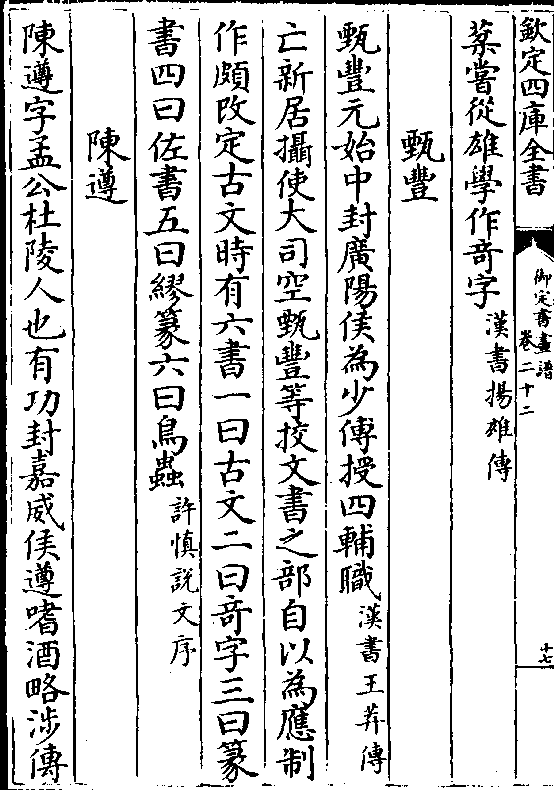 欽定四庫全書
御定書畫譜
卷二十二
十七
棻嘗從雄學作竒字漢書揚雄傳
甄豐
甄豐元始中封廣陽侯為少傅授四輔職漢書王莽傳
亡新居攝使大司空甄豐等挍文書之部自以為應制
作頗改定古文時有六書一曰古文二曰竒字三曰篆
書四曰佐書五曰繆篆六曰鳥蟲許慎說文序
陳遵
陳遵字孟公杜陵人也有功封嘉威侯遵嗜酒略涉傳